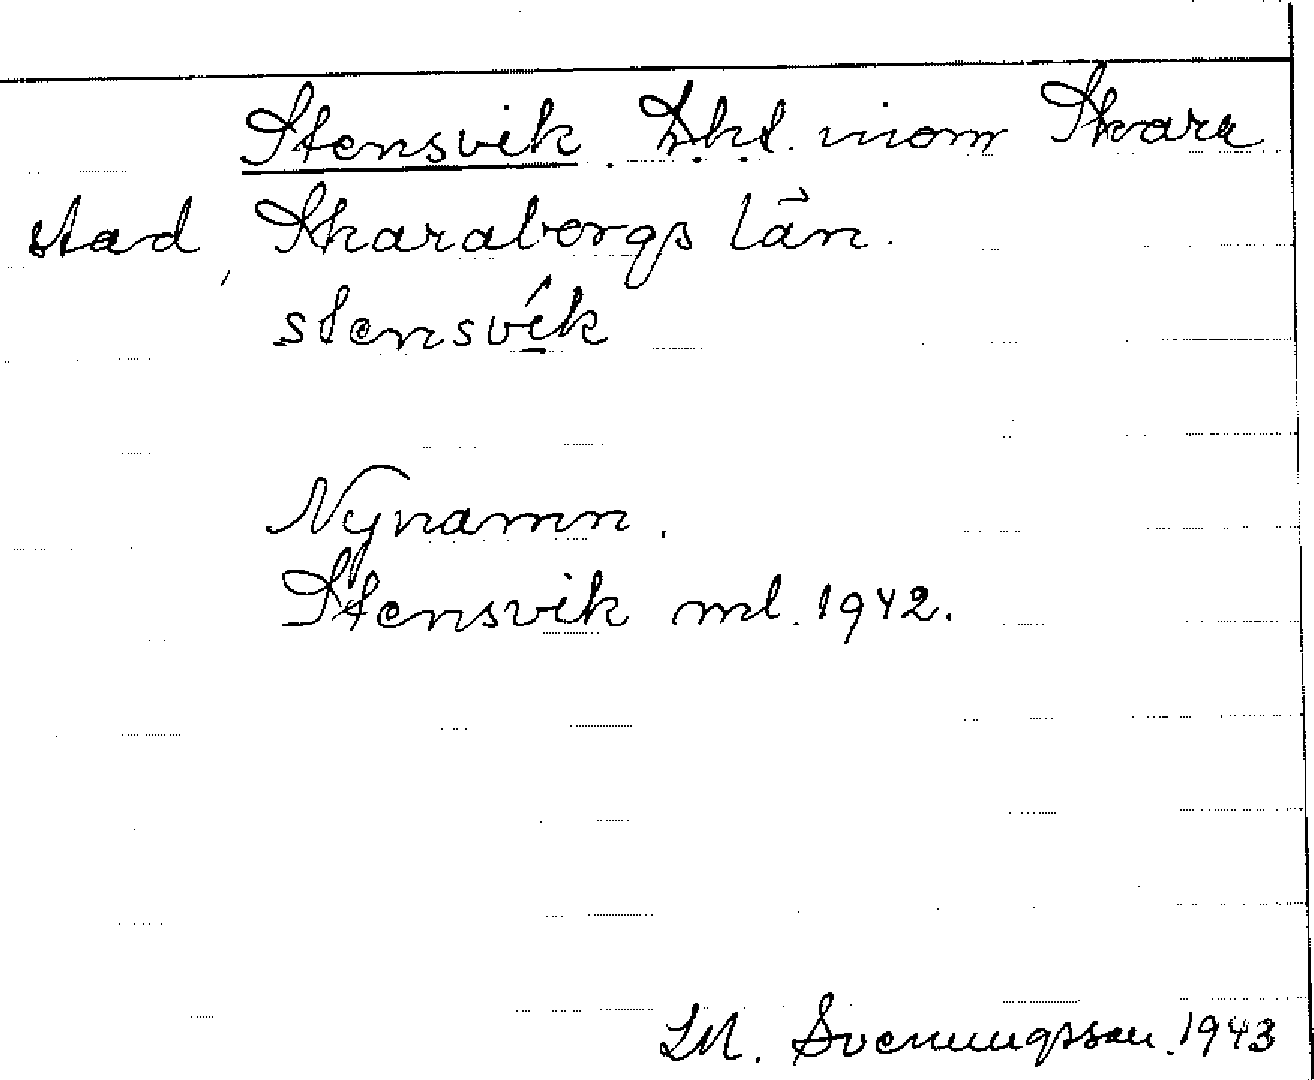 Stensvik. Lht. inom Skara
stad, Skaraborgs län.
stensvík
Nynamn.
Stensvik ml. 1942.
LM. Svenungsson. 1943